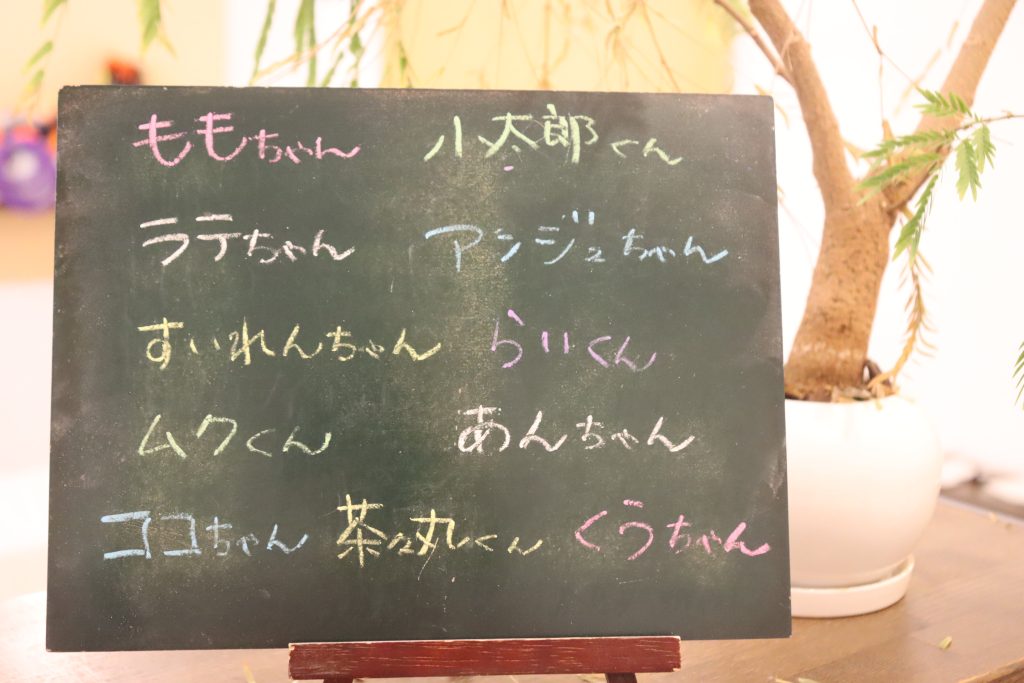 ももちゃん 小太郎くん
ラテちゃん アンジュちゃん
すいれんちゃん らいくん
ムクくん あんちゃん
ココちゃん 茶々丸くん くうちゃん